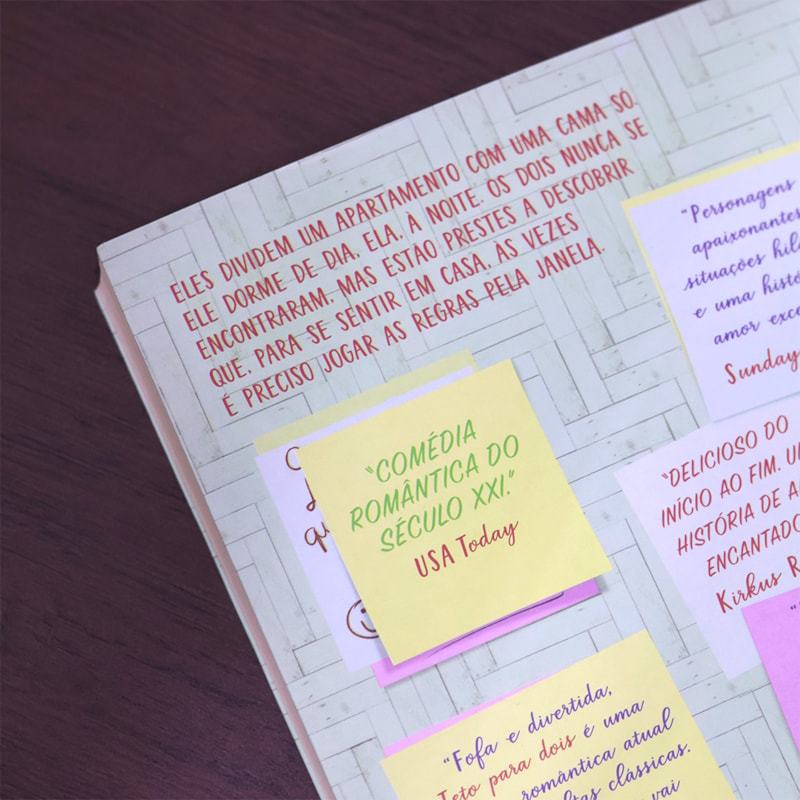 ELES DIVIDEM UM APARTAMENTO COM UMA CAMA SÓ.
ELE DORME DE DIA, ELA, À NOITE. OS DOIS NUNCA SE
ENCONTRARAM, MAS ESTÃO PRESTES A DESCOBRIR
QUE, PARA SE SENTIR EM CASA, ÀS VEZES
É PRECISO JOGAR AS REGRAS PELA JANELA.
"COMÉDIA
ROMÂNTICA DO
SÉCULO XXI."
USA Today
"Personagens
apaixonantes
situações
e uma
amor
Sunday
"DELICIOSO DO
INÍCIO AO FIM.
HISTÓRIA DE
Kirkus
"Fofa e divertida,
Teto para dois é uma
romântica atual
clássicas.
vai